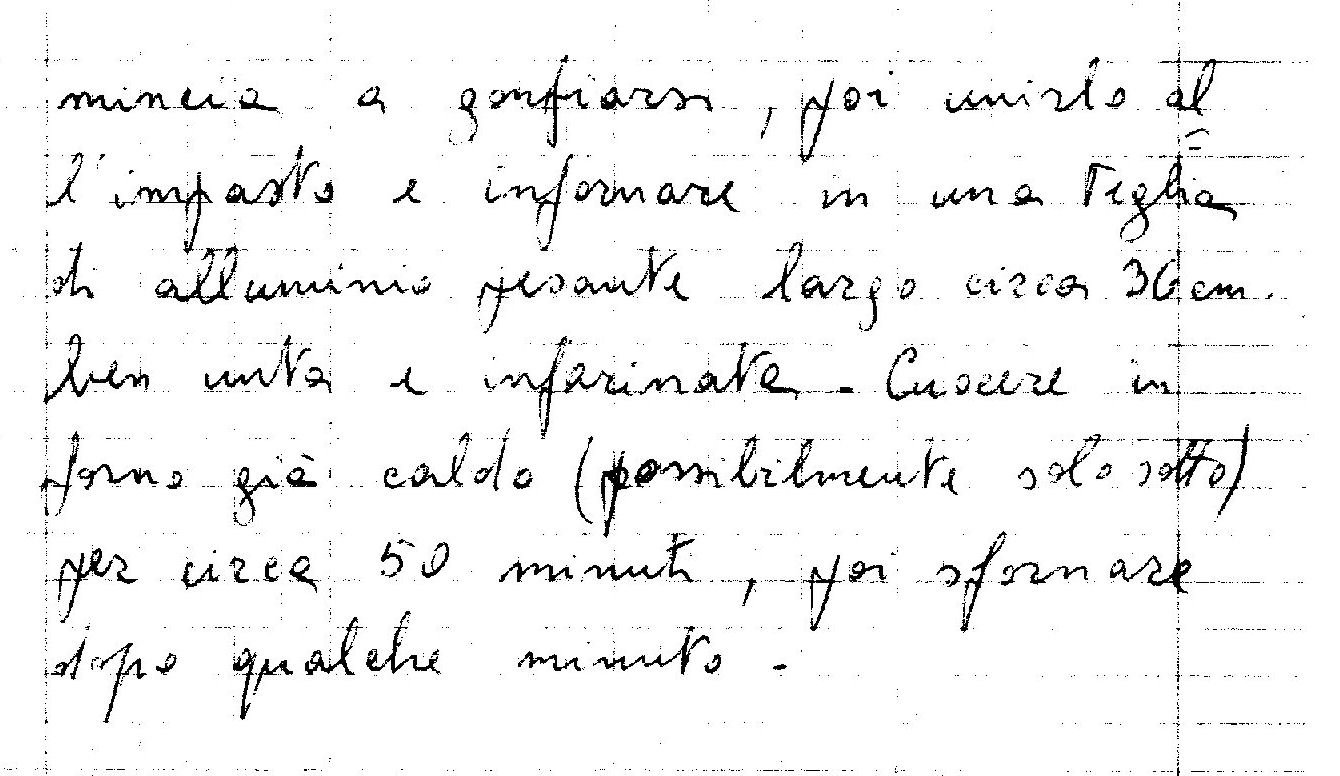 mincia a gonfiarsi, poi unirlo al
l'impasto e infornare in una teglia
di alluminio pesante largo circa 36 cm.
ben unta e infarinata - Cuocere in
forno già caldo (possibilmente solo sotto)
per circa 50 minuti, poi sfornare
dopo qualche minuto -